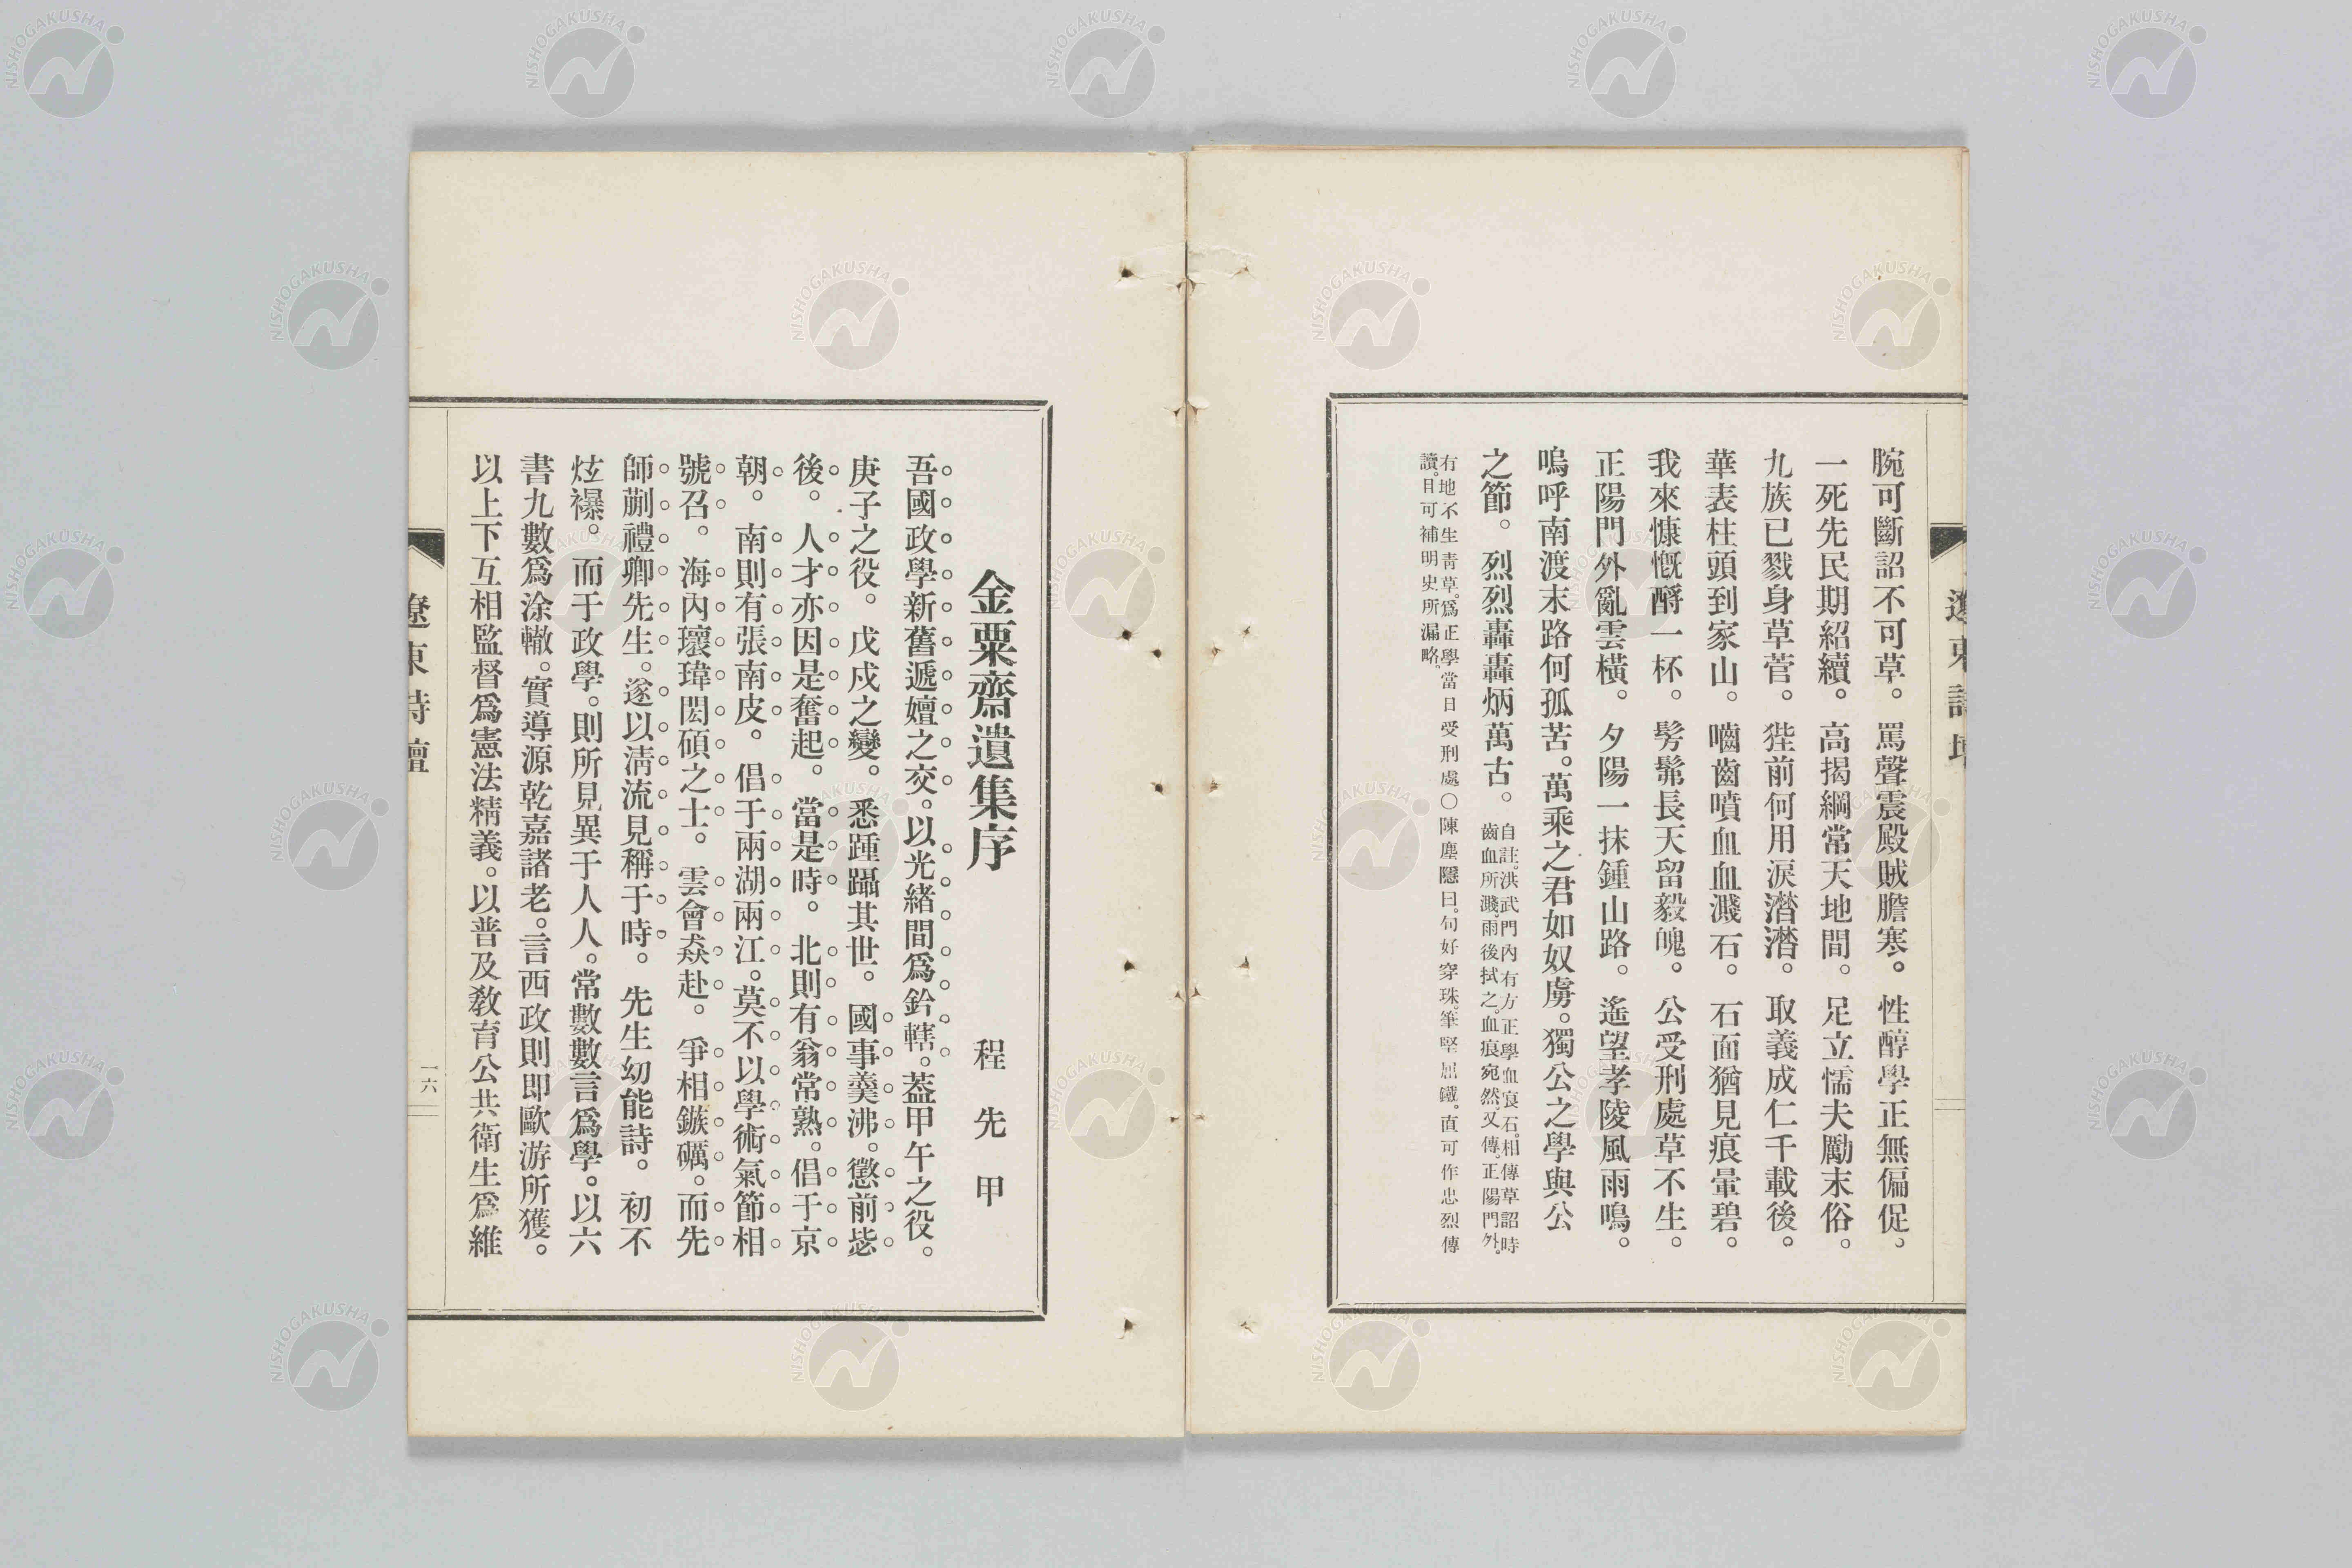 遼東詩壇
腕可斷詔不可草。罵聲震殿賊膽寒。性醇學正無偏促。
一死先民期紹續。高揭綱常天地間。足立懦夫勵末俗。
九族已戮身草菅。狴前何用淚潸潸。取義成仁千載後。
華表柱頭到家山。嚙齒噴血血濺石。石面猶見痕暈碧。
我來慷慨酹一杯。髣髴長天留毅魄。公受刑處草不生。
正陽門外亂雲橫。夕陽一抹鍾山路。遙望孝陵風雨鳴。
嗚呼南渡末路何孤苦。萬乘之君如奴虜。獨公之學與公
之節。烈烈轟轟炳萬古。自註。洪武門內有方正學血衺石。相傳草詔時
齒血所濺。雨後拭之。血痕宛然。又傳。正陽門外。
有地不生靑草。爲正學當日受刑處〇陳塵隱曰。句好穿珠。筆堅屈鐵。直可作忠烈傳
讀。目可補明史所漏略。
金粟齋遺集序
程先甲
吾國政學新舊遞嬗之交。以光緖間爲鈐轄。葢甲午之役。
庚子之役。戊戍之變。悉踵躡其世。國事羹沸。懲前毖
後。人才亦因是奮起。當是時。北則有翁常熟。倡于京
朝。南則有張南皮。倡于兩湖兩江。莫不以學術氣節相
號召。海內瓌瑋閎碩之士。雲會猋赴。爭相鏃礪。而先
師蒯禮卿先生。遂以淸流見稱于時。先生幼能詩。初不
炫襮。而于政學。則所見異于人人。常數數言爲學。以六
書九數爲涂轍。實導源乾嘉諸老。言西政則卽歐游所獲。
以上下互相監督爲憲法精義。以普及敎育公共衛生爲維
遼東詩壇
一六
NISHOGAKUSHA